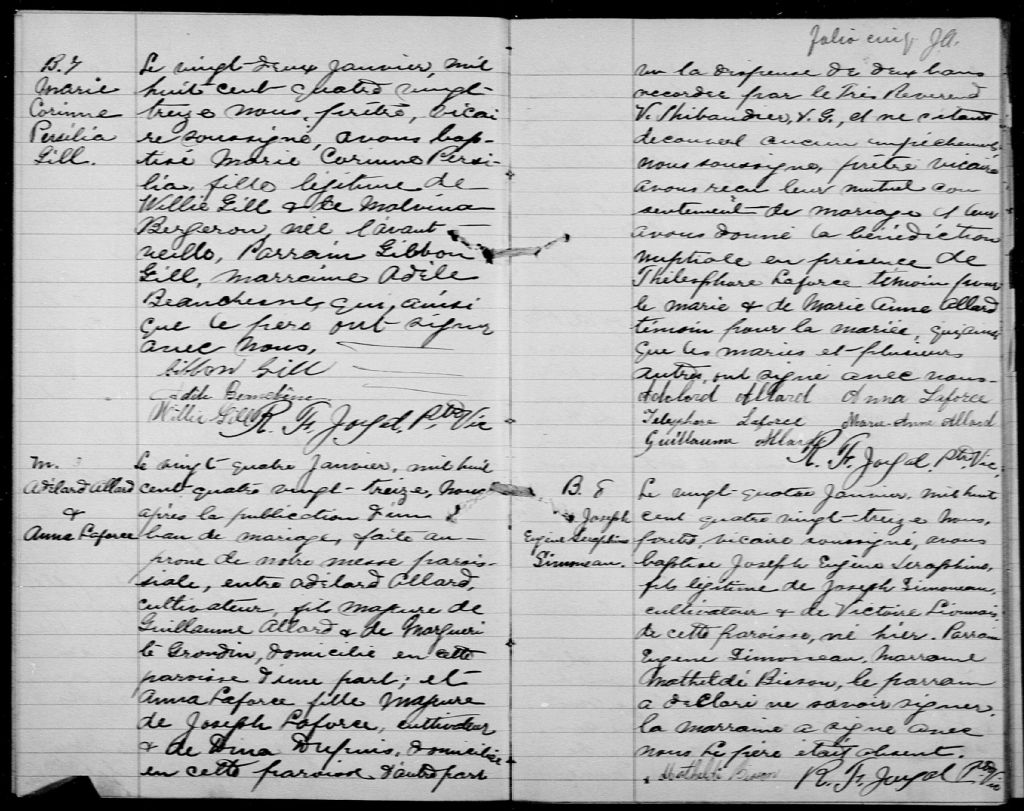 B. 7
Marie
Corinne
Persilia
Gill.
Le vingt-deux Janvier, mil
huit cent quatre vingt-
treize nous, prêtre, vicai
re soussigné, avons bap-
tisé Marie Corinne Persi-
lia, fille légitime de
Willie Gill & de Malvina
Bergeron, née l'avant
veille, Parrain Gibbon
Gill, marraine Adèle
Beauchesne, qui, ainsi
que le père ont signé
avec nous,
Gibbon Gill
Willie Gill
R. F. Joyal, Ptre Vic
M.
Adélard Allard
&
Anna Laforce
Le vingt quatre Janvier, mil huit
cent-quatre vingt-treize, nous
après la publication d'un
ban de mariage, faite au-
prone de notre messe parois-
siale, entre Adélard Allard,
cultivateur, fils majeure de
Guillaume Allard & de Margueri
te Grondin, domicilié en cette
paroisse d'une part; et
Anna Laforce fille majeure
de Joseph Laforce, cultivateur
& de Dina Dupuis, domiciliée
en cette paroisse d'autre part
folio cinq J.A.
vu la dispense de deux bans
accordée par le Très Reverend
V. Thibaudier, V. G., et ne s'étant
découvert aucun empêchement
nous soussigné, prêtre vicaire
avons reçu leur mutuel con
sentement de mariage et leur
avons donné la bénédiction
nuptiale en présence de
Thélesphore Laforce témoin pour
le marié & de Marie Anne Allard
témoin pour la mariée, qui, ainsi
que les mariés et plusieurs
autres, ont signé avec nous-
Adélard Allard Anna Laforce
Telesphore Laforce Marie-Anne Allard
Guillaume Allard
R. F. Joyal, Ptre. Vic.
B. 8
Joseph
Eugène Seraphin
Simoneau.
Le vingt-quatre Janvier, mil huit
cent quatre vingt-treize nous,
prêtre, vicaire soussigné, avons
baptisé Joseph Eugène Seraphin,
fils légitime de Joseph Simoneau,
cultivateur & de Victoire Lionnais
de cette paroisse, né hier. Parrain
Eugène Simoneau, Marraine
Mathilde Bisson, le parrain
a déclaré ne savoir signer.
la marraine a signé avec
nous Le père était absent.
Mathilde Bisson R. F. Joyal Ptre Vic